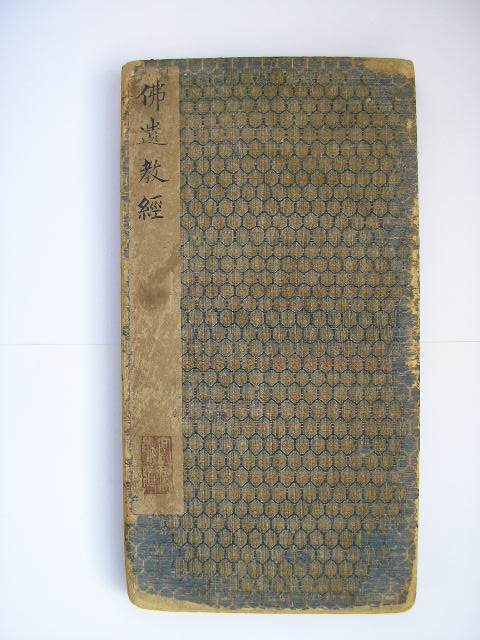 佛遺教經